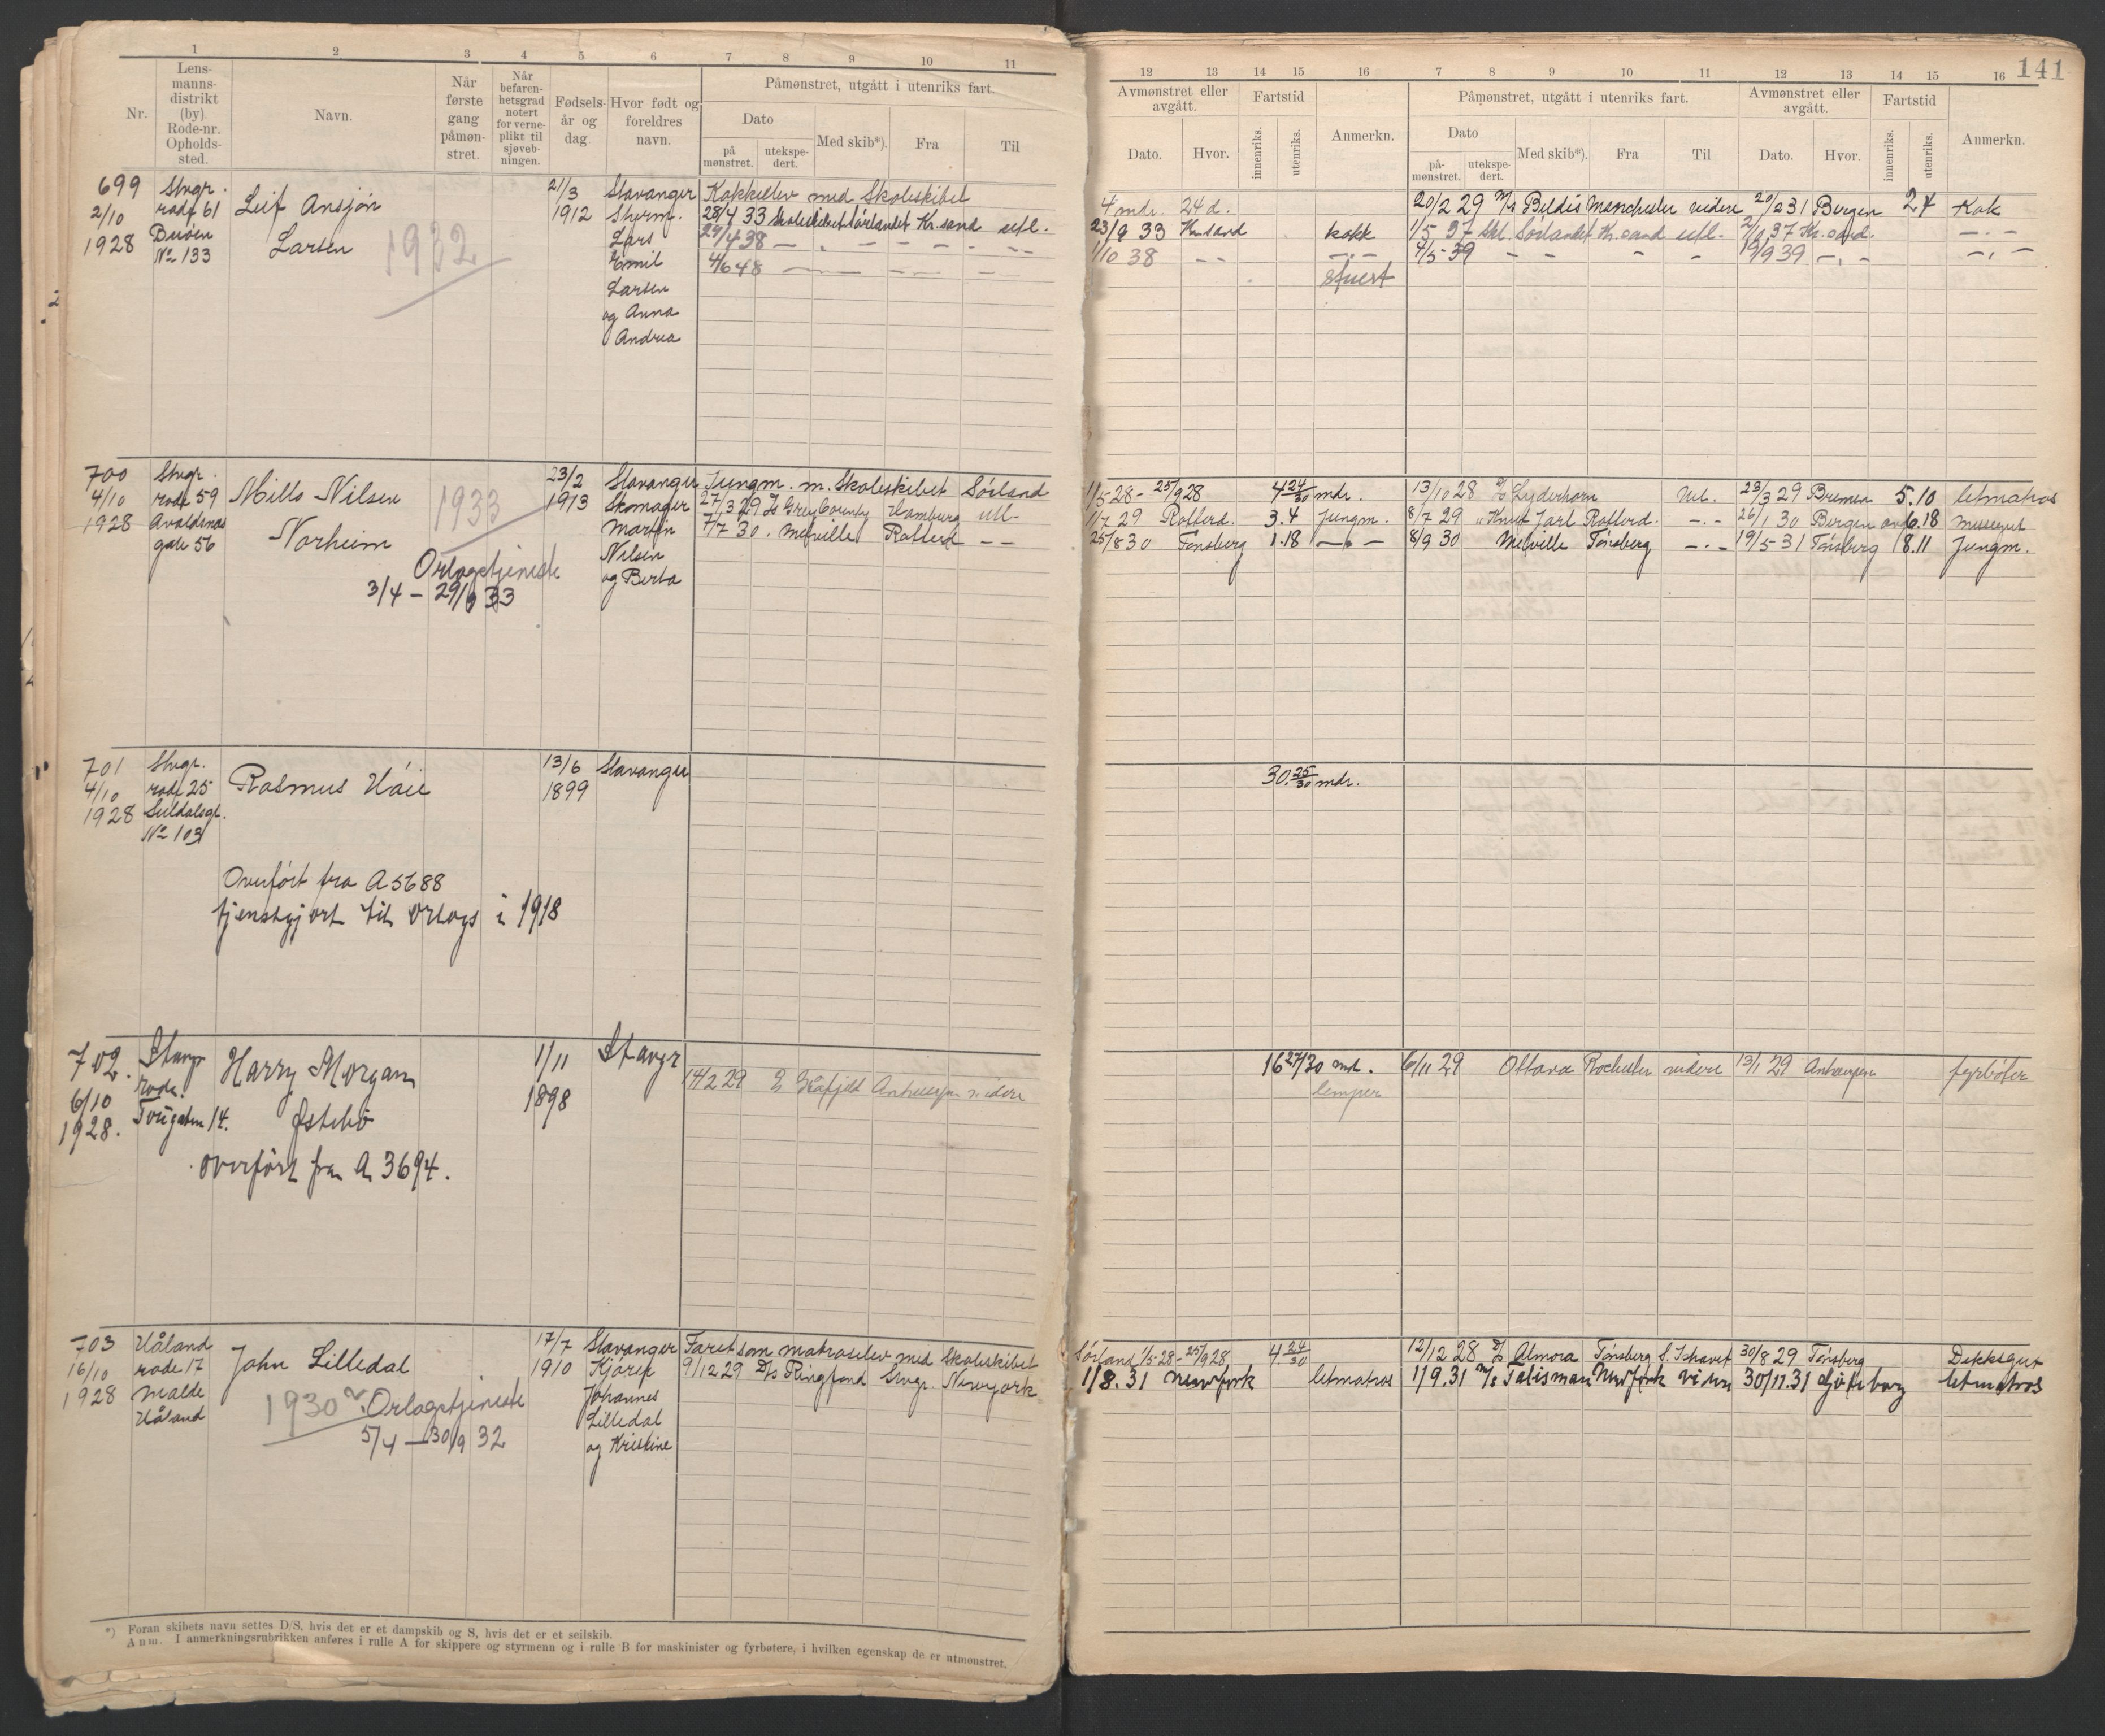 1 2 3 4 5 6 7 8 9 10 11
Nr.
Lens-
manns-
distrikt
(by).
Rode-nr.
Opholds-
sted.
Navn.
Når
første
gang
påmøn-
stret.
Når
befaren-
hetsgrad
notert
for verne-
plikt til
sjøveb-
ningen.
Fødsels-
år og
dag
Hvor født og
foreldres
navn.
Påmønstret, utgått i utenriks fart.
Dato
på
mønstret.
utekspe-
dert.
Med skib*).
Fra
Til
699
2/10
1928
Stvgr.
rode 61
Buøen
No 133
Leif Ansjøn
Larsen
1932
21/3
1912
Stavanger
Styrm.
Lars
Emil
Larsen
og Anna
Andrea
Kokkelev med Skoleskibet
28/4 33 Skoleskibet Sørlandet Kr.sand utl.
29/4 38 — " — — — — —
4/6 48 — — — —
700
4/10
1928
Stvgr.
rode 59
Avaldsnes
gate 56
Mills Nilsen
Norheim
1933
Orlogstjeneste
3/4 – 29/9 33
23/2
1913
Stavanger
Skomager
Martin
Nilsen
og Berta
Jungm. m. Skoleskibet Sørland
27/3 29 D/s Grey County Hamburg utl-
7/7 30 . Melville Rotterd — —
701
4/10
1928
Stvgr.
rode 25
Suldalsgt.
No 103
Rasmus Håie
13/6
1899
Stavanger
Overført fra A 5688
tjenstgjort til Orlogs i 1918
702.
6/10
1928.
Stavgr
rode.
Torvgaten 14.
Harry Morgan
Østebø
overført fra A 3694.
1/11
1898
Stavgr
14/2 29 D/s Gråfjeld Antwerpen videre
703
16/10
1928
Håland
rode 17
Malde
Håland
John Lilledal
1930
Orlogstjeneste
5/4 – 30/9 32
17/7
1910
Stavanger
Kjørek
Johannes
Lilledal
og Kristine
Faret som matroselev med Skoleskibet
9/12 29 D/s Ringfond Stvgr. Newyork
*) Foran skibets navn settes D/S, hvis det er et dampskib og S, hvis det er et seilskib.
Anm. I anmerkningsrubrikken anføres i rulle A for skippere og styrmenn og i rulle B for maskinister og fyrbøtere, i hvilken egenskap de er utmønstret.
141
12 13 14 15 16 7 8 9 10 11 12 13 14 15 16
Avmønstret eller
avgått.
Dato.
Hvor.
Fartstid
innenriks.
utenriks.
Anmerkn.
Påmønstret, utgått i utenriks fart.
Dato
på-
mønstret.
utekspe-
dert.
Med skib*).
Fra
Til
Avmønstret eller
avgått.
Dato.
Hvor.
Fartstid
innenriks.
utenriks.
Anmerkn.
4 mdr. 24 d. 20/2 29 M/s Beldis Manchester videre 20/2 31 Bergen 24 Kok
23/9 33 Kr.sand kokk 1/5 37 Skl. Sørlandet Kr.sand utl. 2/9 37 Kr.sand. —.—
1/10 38 — — —.— 4/5-39 — — — — 19/9 39 —.— —.—
stuert
1/5 28 - 25/9 28 4 24/30 mdr. 13/10 28 D/s Lyderhorn Utl. 23/3 29 Bremen 5.10 letmatros
1/7 29 Rotterd. 3.4 Jungm. 8/7 29 " Knut Jarl Rotterd. —.— 26/1 30 Bergen 6.18
25/8 30 Tønsberg 1.18 —.— 8/9 30 Melville Tønsberg —.— 19/5-31 Tønsberg 8.11 Jungm.
30.25/30 mdr.
16 27/30 md. 6/11 29 Ottava Rochester videre 13/1 29 Antwerpen fyrbøter
lemper
Sørland 1/5-28 - 25/9 28 4 24/30 12/12 28 D/s Almora Tønsberg S. Ishavet 30/8 29 Tønsberg Dekksgut
1/8.31 Newyork letmatros 1/9.31 M/s Talisman Newyork viden 30/11.31 Gøteborg letmatros